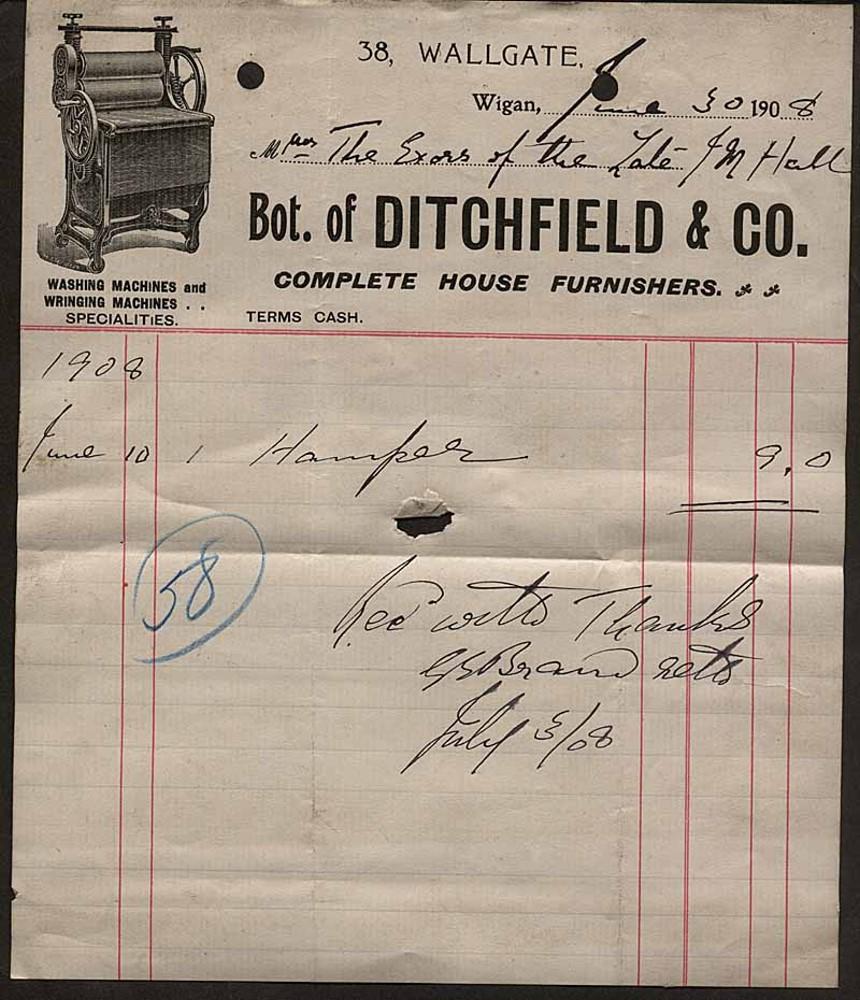 38, WALLGATE.
Wigan, June 30 1908
Messrs The Exors of the Late J M Hall
Bot. of DITCHFIELD & CO.
COMPLETE HOUSE FURNISHERS.
WASHING MACHINES and
WRINGING MACHINES . .
SPECIALITIES.
TERMS CASH.
1908
June 10 1 Hamper 9.0
58
Recd with Thanks
July 3/08